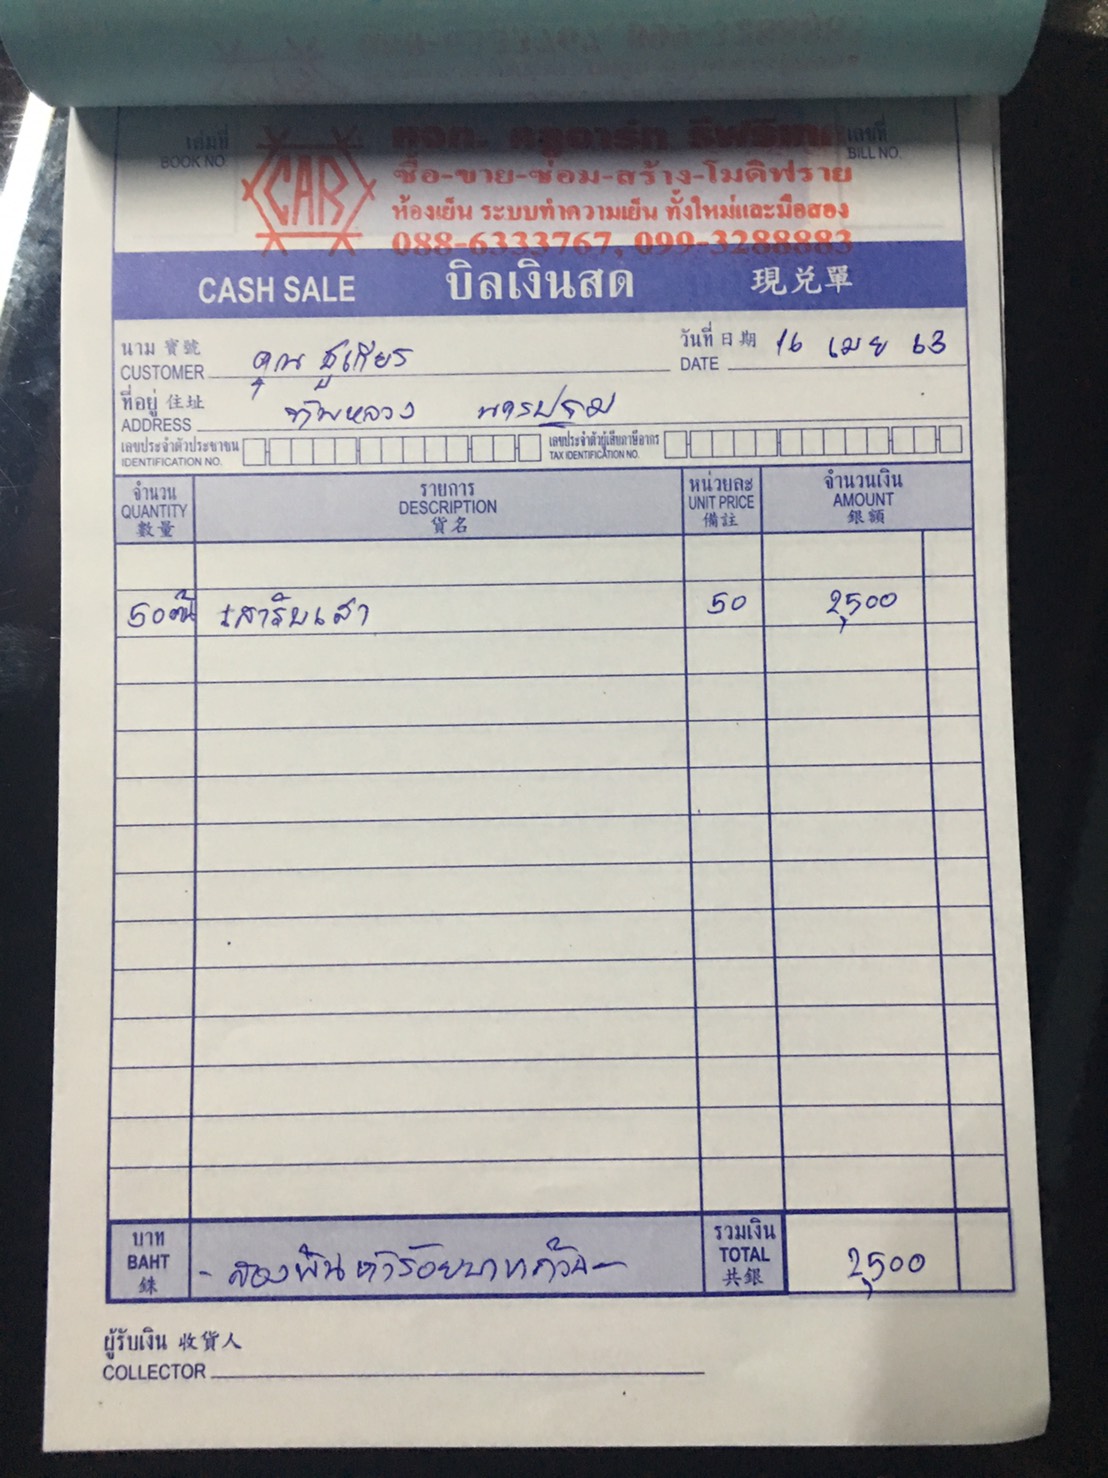 เล่มที่
BOOK NO.
เลขที่
BILL NO.
CAR
หจก.
ซื้อ-ขาย-ซ่อม-สร้าง-โมดิฟราย
ห้องเย็น ระบบทำความเย็น ทั้งใหม่และมือสอง
088-6333767, 099-3288883
CASH SALE บิลเงินสด 現兑單
นาม 寶號
CUSTOMER คุณ ชูเกียร
วันที่ 日期
DATE 16 เมย 63
ที่อยู่ 住址
ADDRESS ทัพหลวง นครปฐม
เลขประจำตัวประชาชน
IDENTIFICATION NO.
เลขประจำตัวผู้เสียภาษีอากร
TAX IDENTIFICATION NO.
จำนวน
QUANTITY
數量
รายการ
DESCRIPTION
貨名
หน่วยละ
UNIT PRICE
備註
จำนวนเงิน
AMOUNT
銀額
50 50 2,500
บาท
BAHT
銖
- สองพันห้าร้อยบาทถ้วน -
รวมเงิน
TOTAL
共銀
2,500
ผู้รับเงิน 收貨人
COLLECTOR